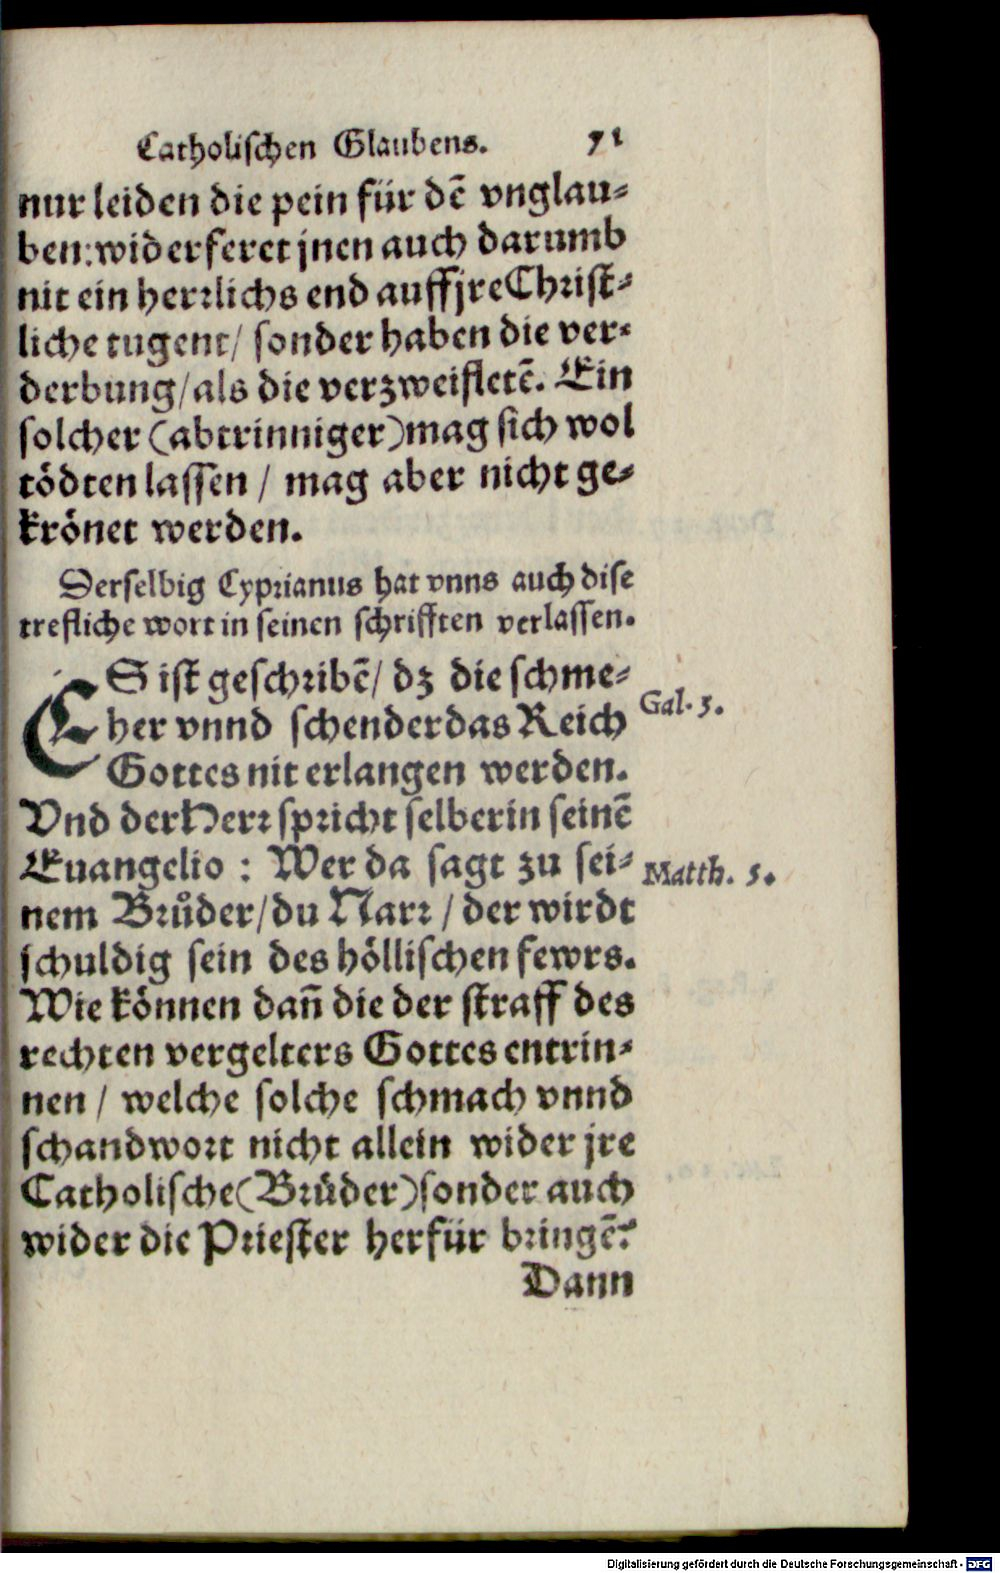 Catholischen Glaubens. 71
nur leiden die pein für dē vnglau-
ben: widerferet jnen auch darumb
nit ein herrlichs end auff jre Christ-
liche tugent/ sonder haben die ver-
derbung/als die verzweifletē. Ein
solcher (abtrinniger) mag sich wol
tödten lassen / mag aber nicht ge-
krönet werden.
Derselbig Cyprianus hat vnns auch dise
trefliche wort in seinen schrifften verlassen.
ES ist geschribē/ dz die schme-
her vnnd schender das Reich
Gal. 5.
Gottes nit erlangen werden.
Vnd der Herr spricht selber in seinē
Euangelio : Wer da sagt zu sei-
Matth. 5.
nem Brůder/du Narr / der wirdt
schuldig sein des höllischen fewrs.
Wie können dañ die der straff des
rechten vergelters Gottes entrin-
nen / welche solche schmach vnnd
schandwort nicht allein wider jre
Catholische (Brüder) sonder auch
wider die Priester herfür bringē?
Dann
Digitalisierung gefördert durch die Deutsche Forschungsgemeinschaft - DFG